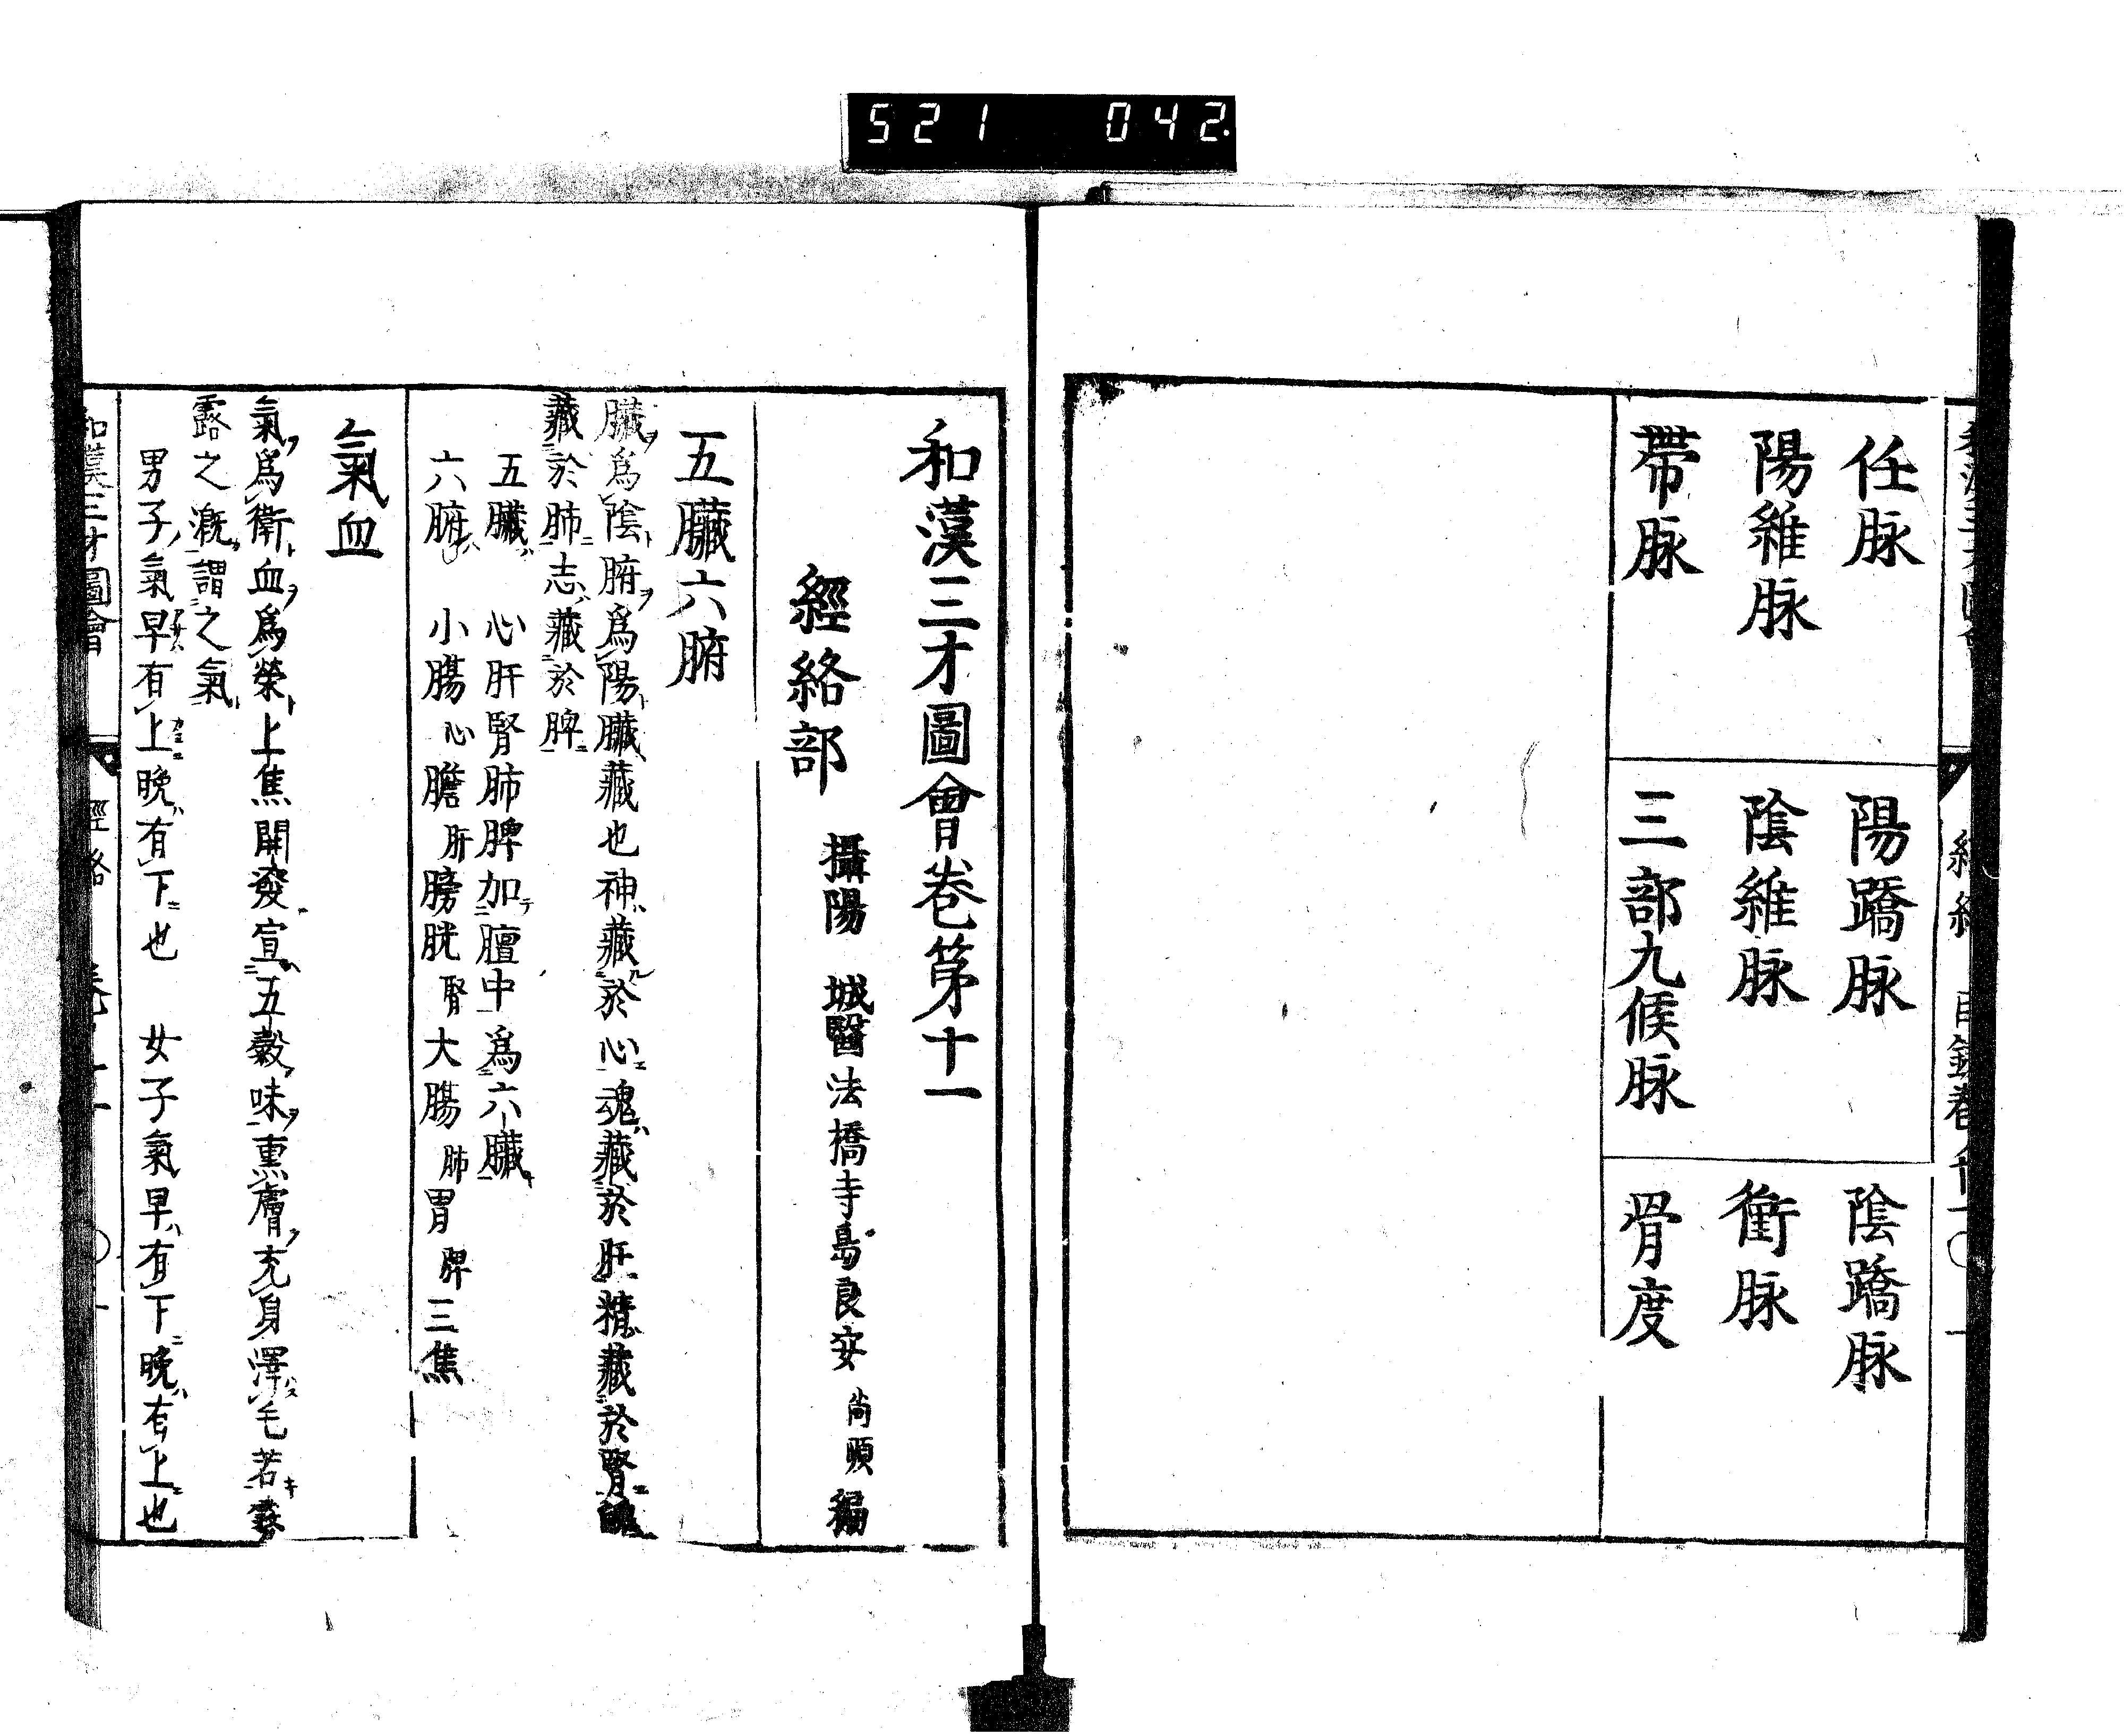 521 042.
任脉 陽蹻脉 陰蹻脉
陽維脉 陰維脉 衝脉
帶脉 三部九候脉 骨度
和漢三才圖會卷第十一
經絡部 攝陽 城醫法橋寺島良安 尚順 編
五臟六腑
臟爲陰腑爲陽臟藏也神藏於心魂藏於肝精藏於腎魄
藏於肺志藏於脾
五臟 心肝腎肺脾加膻中爲六臟
六腑 小腸心膽肝膀胱腎大腸肺胃脾三焦
氣血
氣爲衛血爲榮上焦開發宣五穀味熏膚充身澤毛若霧
露之漑謂之氣
男子氣早有上晚有下也 女子氣早有下晚有上也
和漢三才圖會 經絡